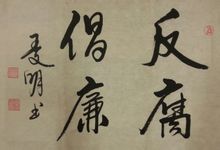 反腐
倡廉
夏明书